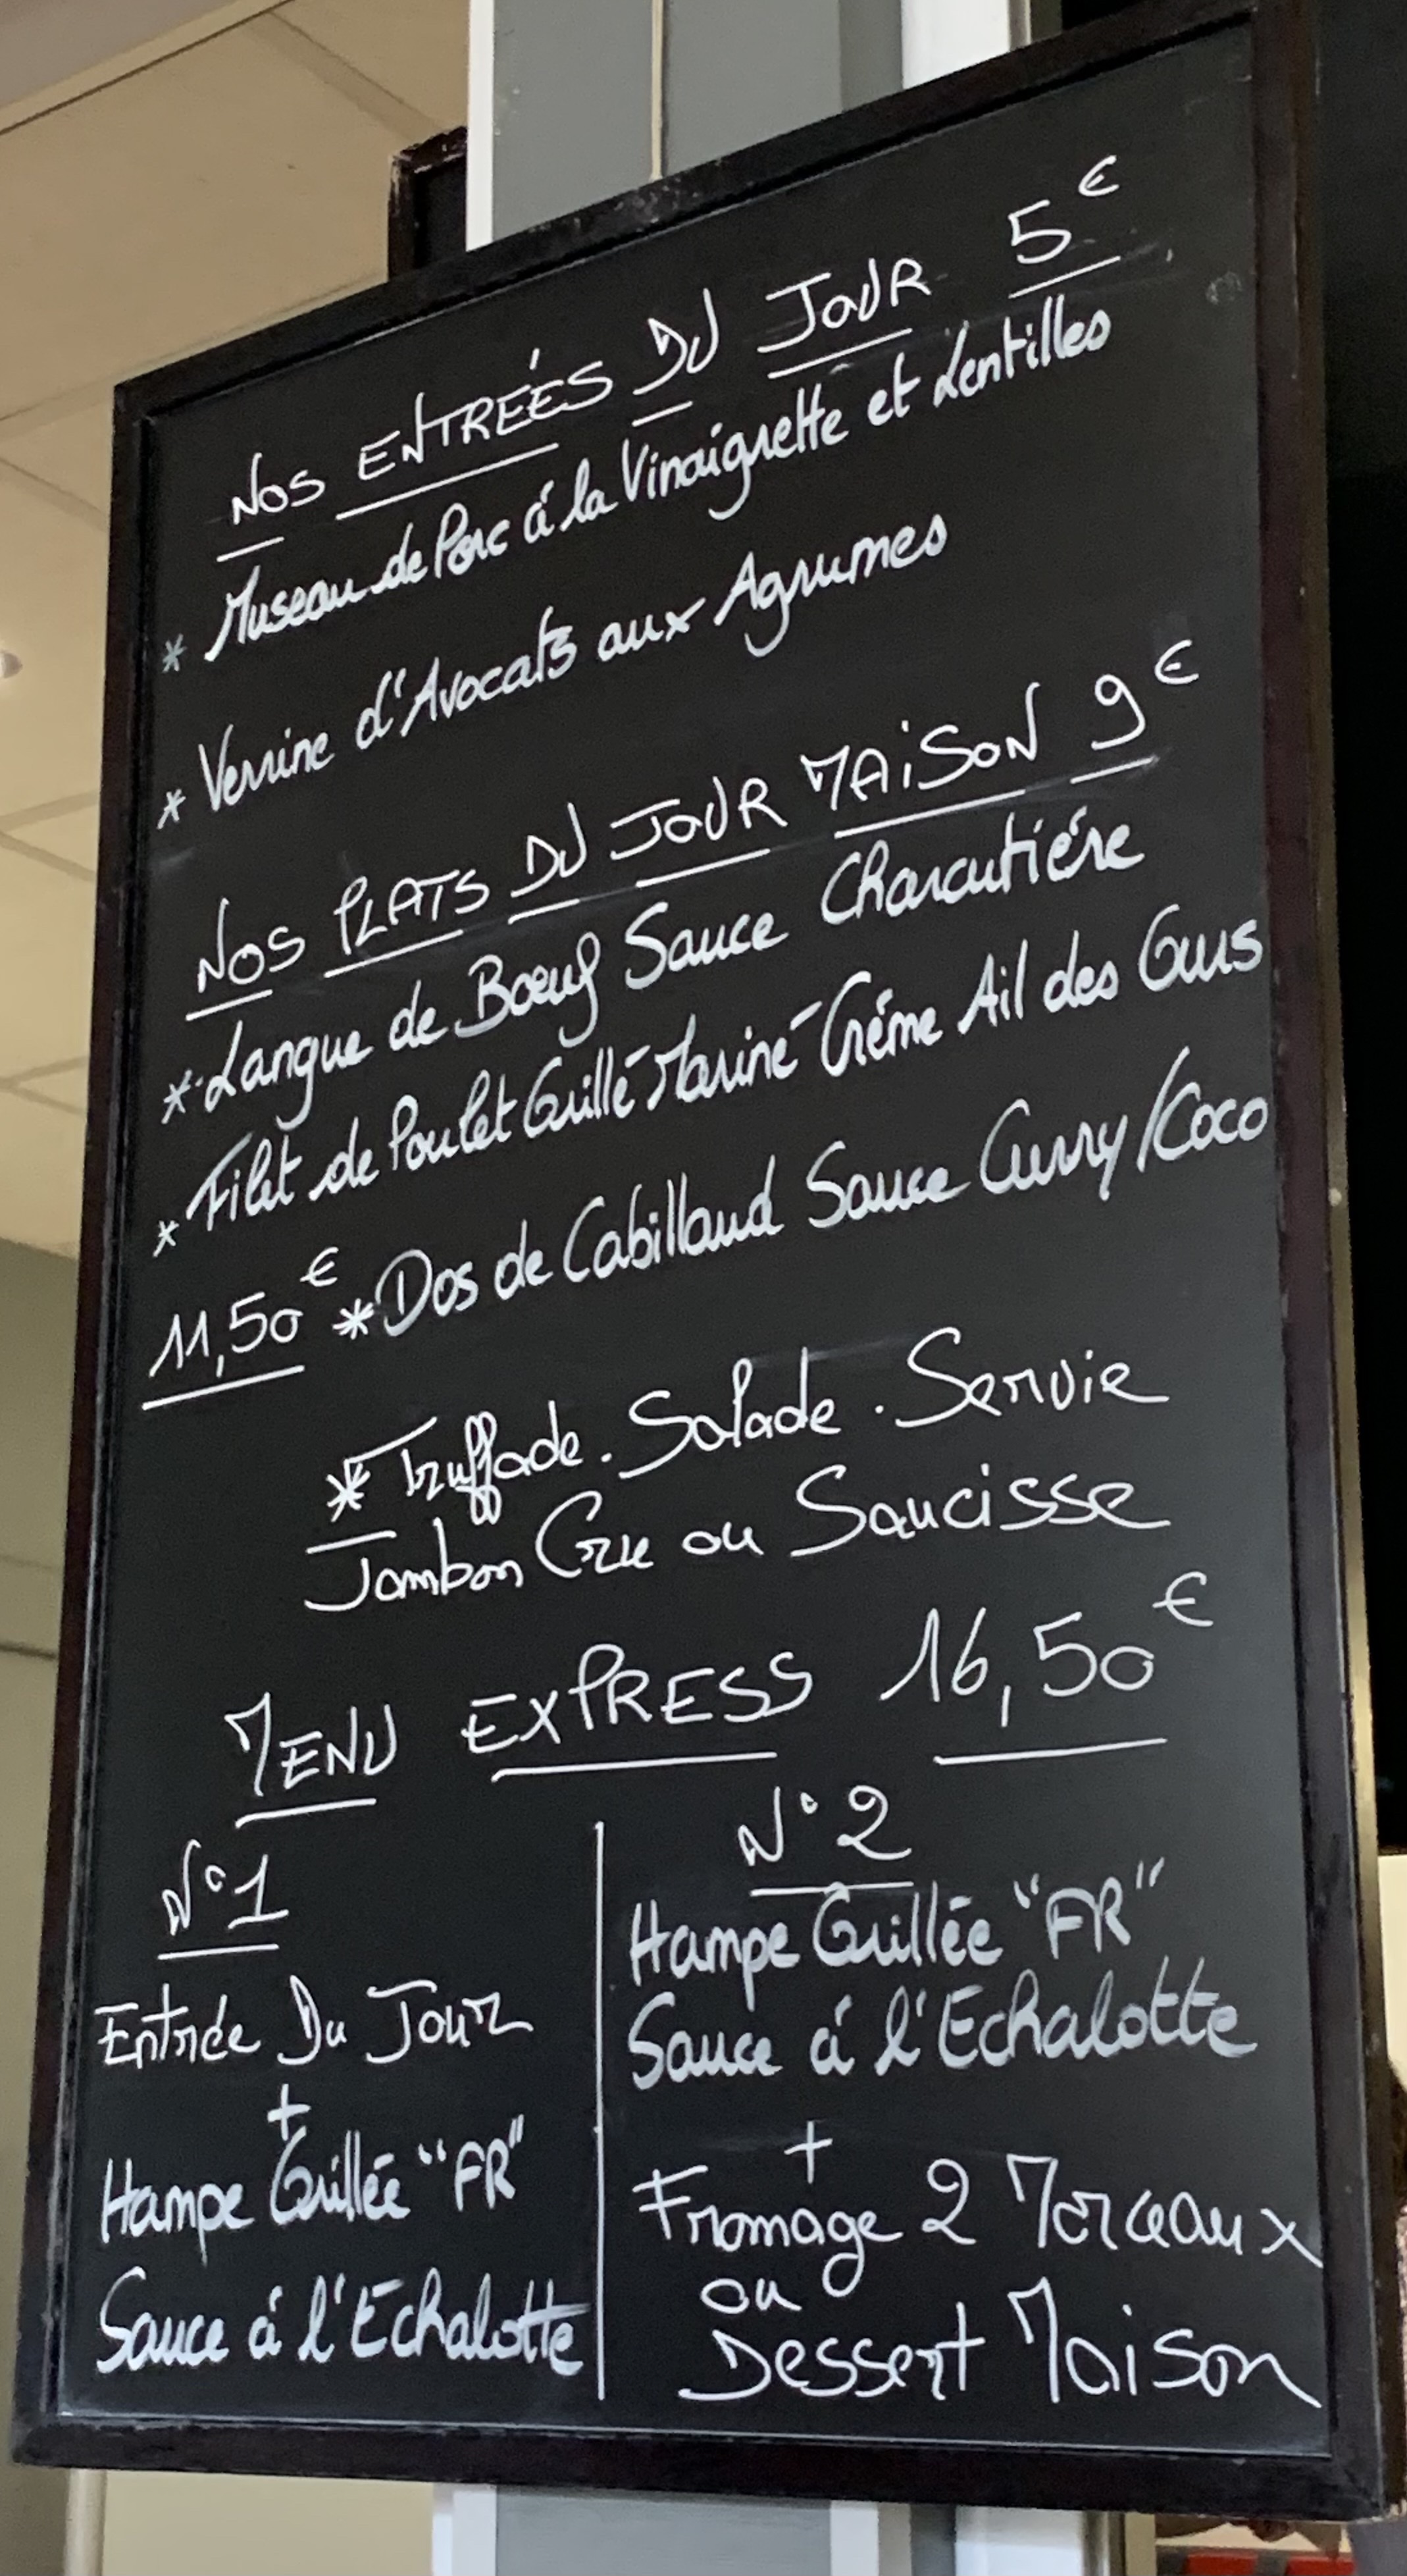 NOS ENTRÉES DU JOUR 5€
* Museau de Porc á la Vinaigrette et Lentilles
* Verrine d'Avocats aux Agrumes
NOS PLATS DU JOUR MAiSON 9€
* Langue de Bœuf Sauce Charcutiére
* Filet de Poulet Grillé Mariné Créme Ail des Ours
11,50€ * Dos de Cabillaud Sauce Curry/Coco
* Truffade. Salade. Servie
Jambon Cru ou Saucisse
MENU EXPRESS 16,50€
N°1
Entrée Du Jour
+
Hampe Grillée "FR"
Sauce á l'Echalotte
N°2
Hampe Grillée "FR"
Sauce á l'Echalotte
+
Fromage 2 Morceaux
ou
Dessert Maison